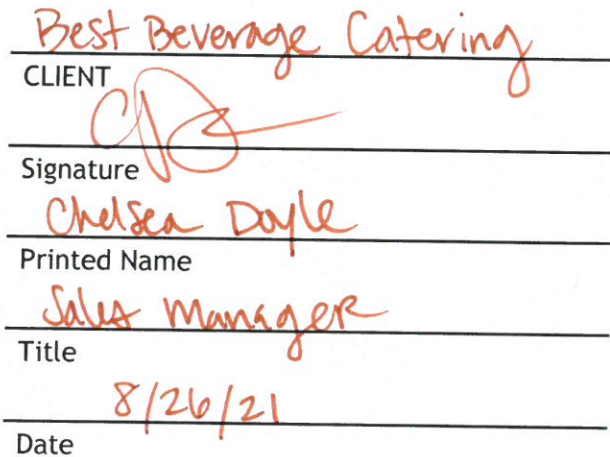 Best Beverage Catering
CLIENT
Signature
Chelsea Doyle
Printed Name
Sales Manager
Title
8/26/21
Date